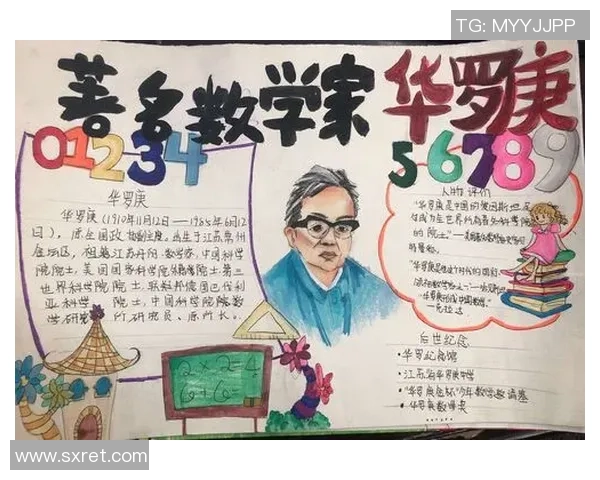 TG: MYYJJPP
著名数学家 华罗庚
01234
56789
华罗庚
华罗庚(1910年11月12日——1985年6月12
日),原全国政协副主席。出生于江苏常州
金坛区,祖籍江苏丹阳。数学家,中国科学
院院士,美国国家科学院外籍院士,第三
世界科学院院士,联邦德国巴伐利
亚科学院院士,中国科学院院数
学研究所研究员、原所长。
人物评价
"华罗庚是中国的爱因斯坦,足
够成为全世界所有著名科学院
的院士。"
后世纪念
·华罗庚纪念馆
·江苏省华罗庚中学
·"华罗庚金杯"少年数学邀请赛
·华罗庚数学奖
2×2=4
6+6=
www.sxret.com